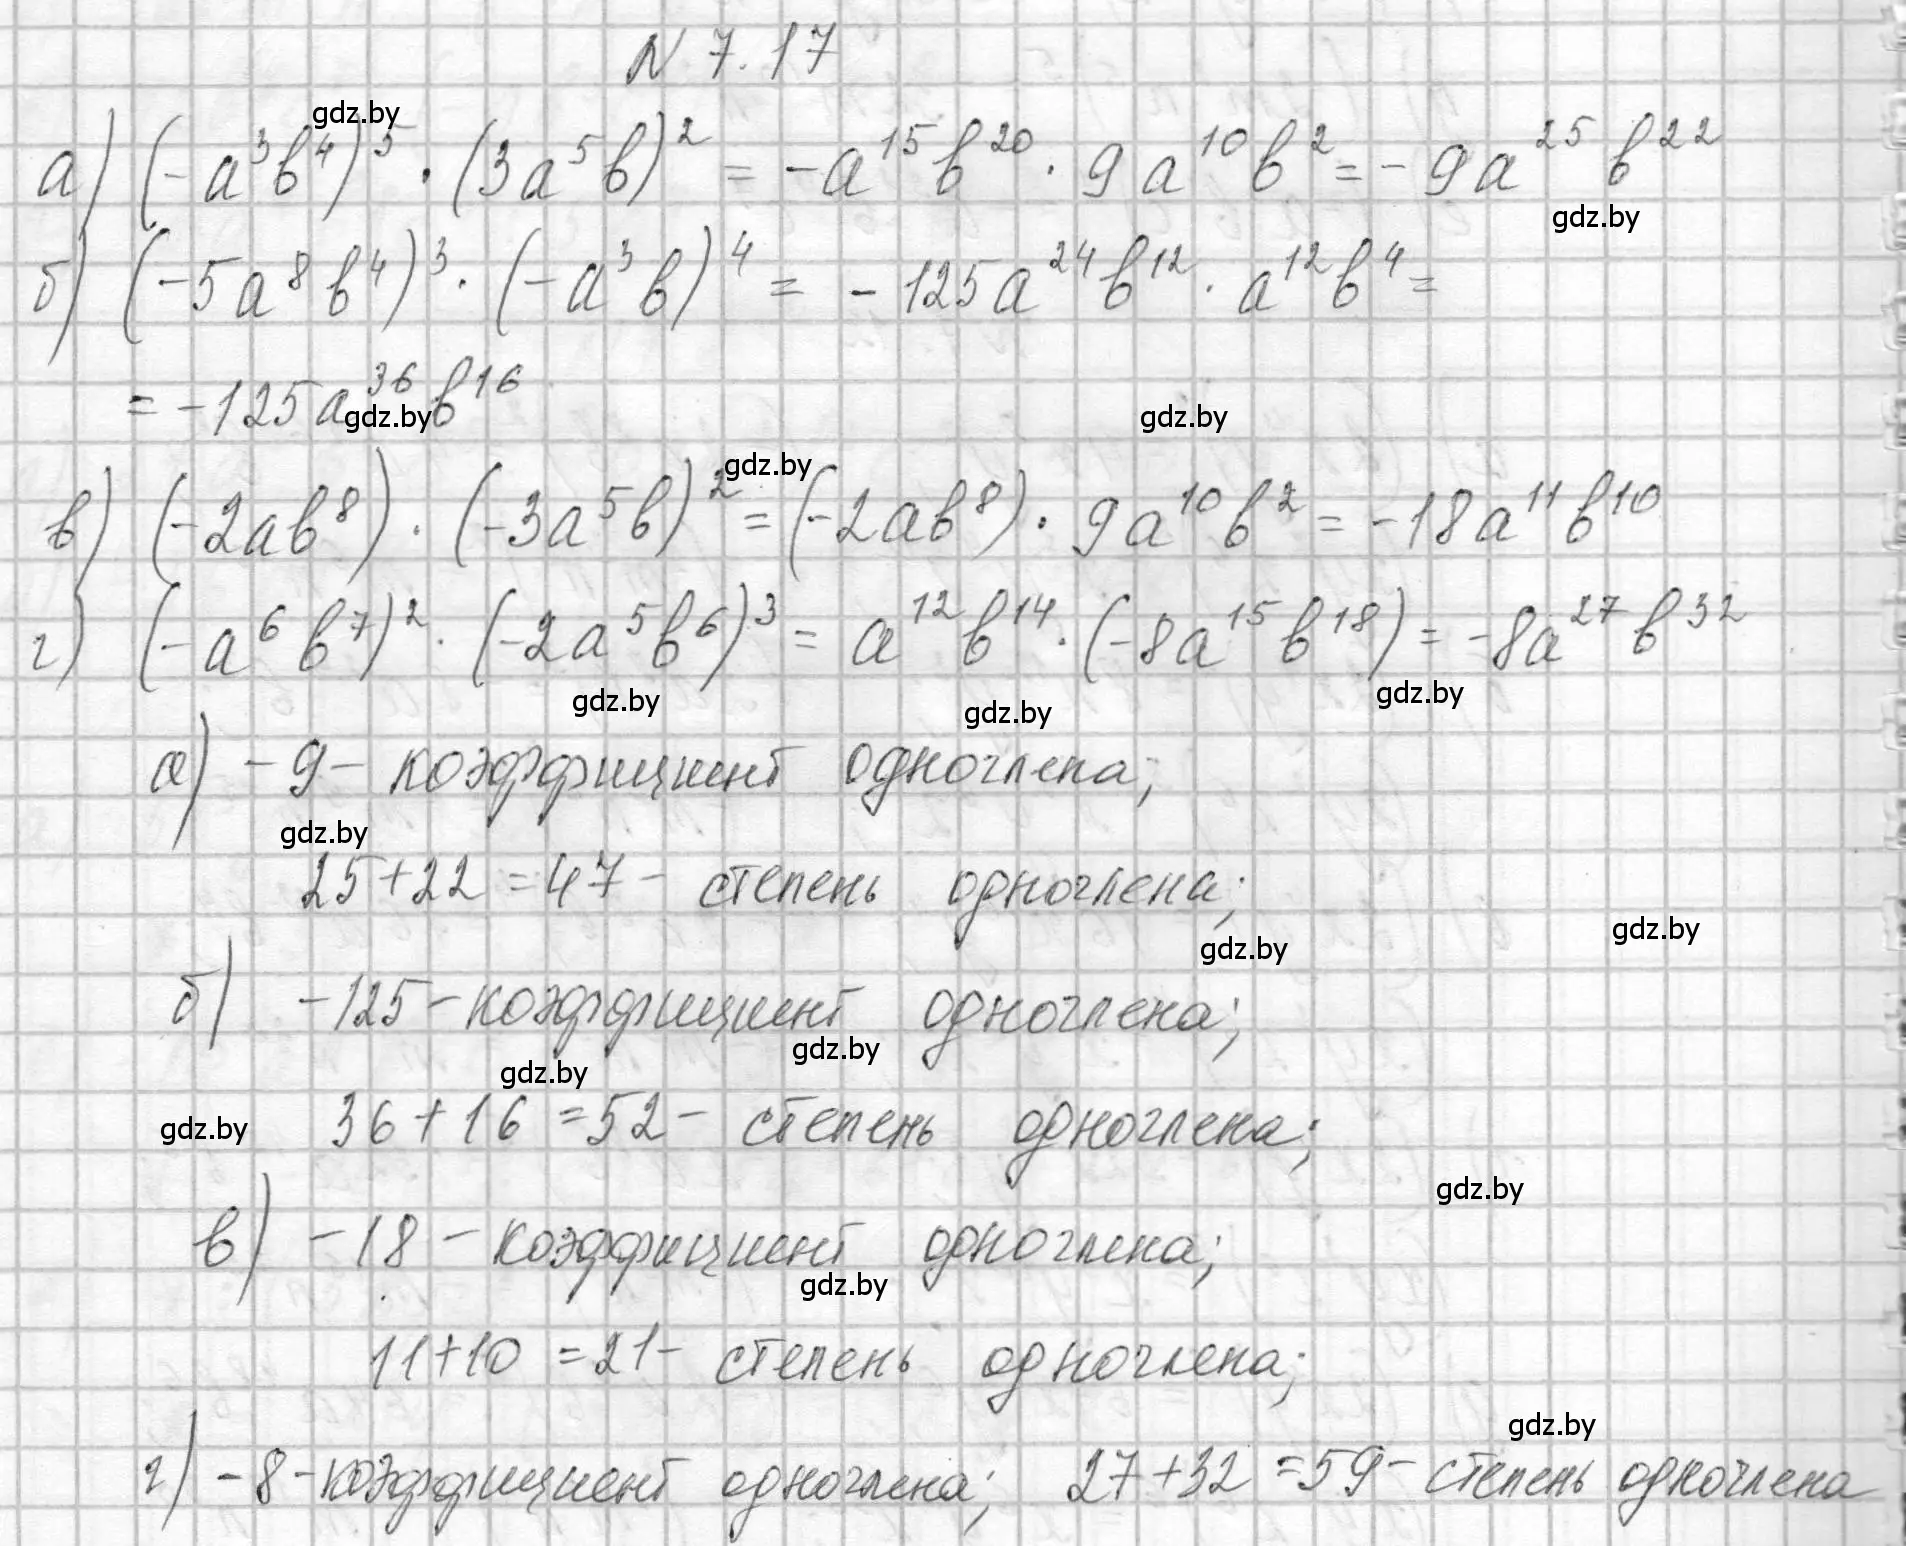 N 7.17
gdz.by
а) (-a³b⁴)⁵ · (3a⁵b)² = -a¹⁵b²⁰ · 9a¹⁰b² = -9a²⁵b²²
gdz.by
б) (-5a⁸b⁴)³ · (-a³b)⁴ = -125a²⁴b¹² · a¹²b⁴ =
= -125a³⁶b¹⁶
gdz.by gdz.by
gdz.by
в) (-2ab⁸) · (-3a⁵b)² = (-2ab⁸) · 9a¹⁰b² = -18a¹¹b¹⁰
г) (-a⁶b⁷)² · (-2a⁵b⁶)³ = a¹²b¹⁴ · (-8a¹⁵b¹⁸) = -8a²⁷b³²
gdz.by gdz.by gdz.by
а) -9 - коэффициент одночлена;
gdz.by
25+22 = 47 - степень одночлена;
gdz.by gdz.by
б) -125 - коэффициент одночлена;
gdz.by
gdz.by
gdz.by 36+16 = 52 - степень одночлена;
gdz.by
в) -18 - коэффициент одночлена;
gdz.by
11+10 = 21 - степень одночлена;
gdz.by
г) -8 - коэффициент одночлена; 27+32 = 59 - степень одночлена